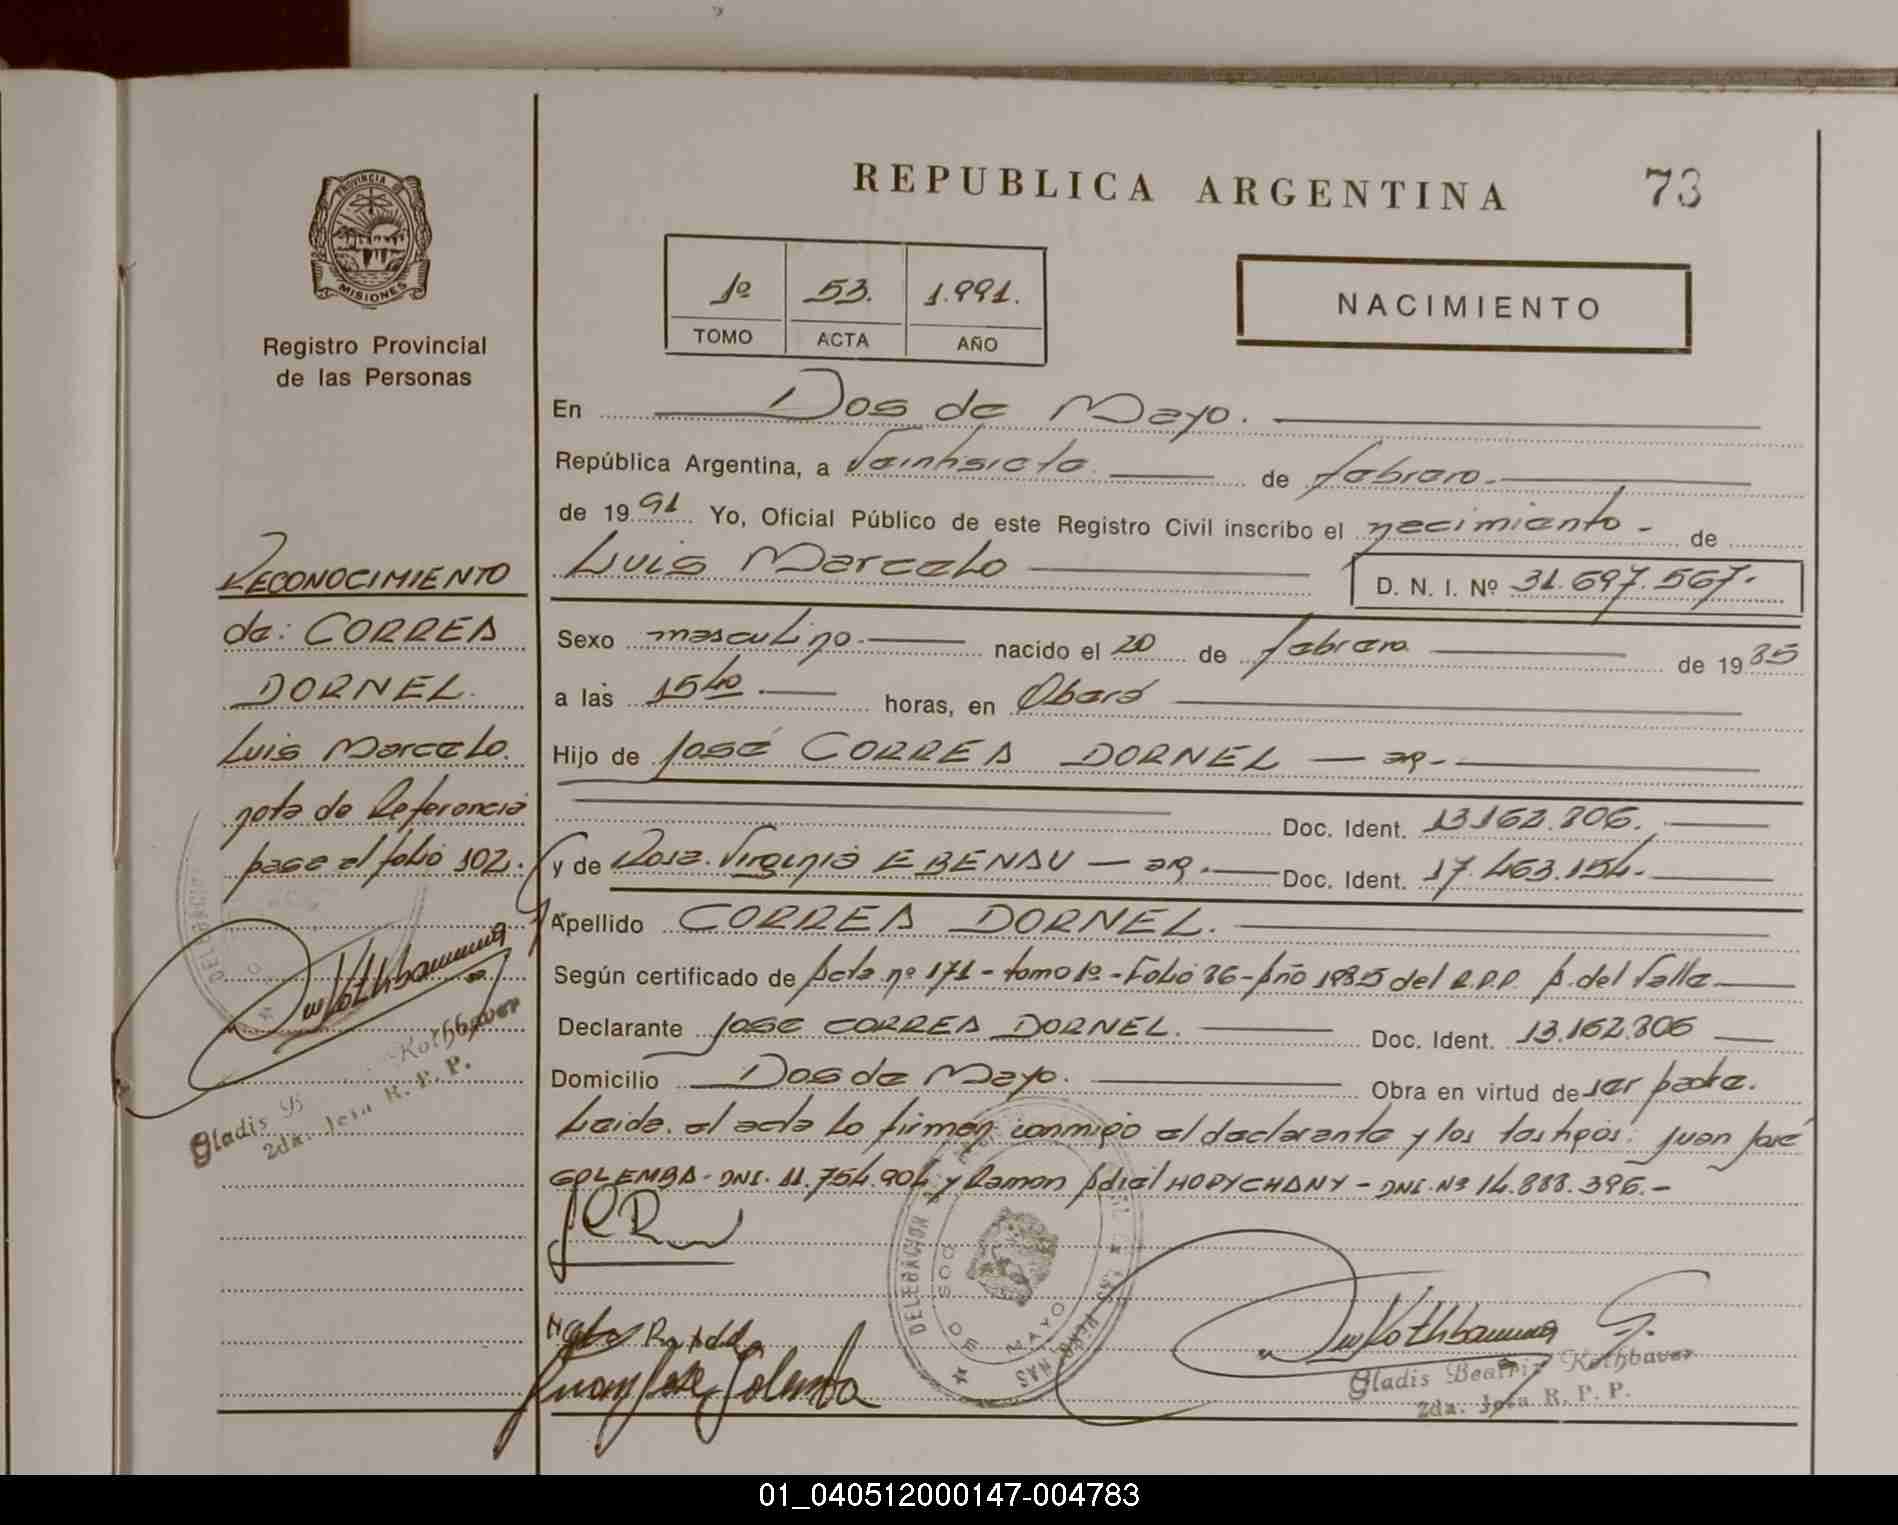 REPUBLICA ARGENTINA
73
PROVINCIA
MISIONES
Registro Provincial
de las Personas
1º 53. 1.991.
TOMO ACTA AÑO
NACIMIENTO
En Dos de Mayo.
República Argentina, a Veintisiete de febrero.
de 1991 Yo, Oficial Público de este Registro Civil inscribo el necimiento - de
Luis Marcelo D. N. I. Nº 31.697.567.
Sexo masculino. nacido el 20 de febrero de 1985
a las 15 40 horas, en Oberá
Hijo de José CORREA DORNEL — ar.-
Doc. Ident. 13.162.806.
y de Rosa Virginia EBENAU — ar. Doc. Ident. 17.463.154.
Apellido CORREA DORNEL.
Según certificado de Acta nº 171 - tomo 1º - Folio 86 - Año 1985 del R.P.P. A. del Valle
Declarante José CORREA DORNEL. Doc. Ident. 13.162.806
Domicilio Dos de Mayo. Obra en virtud de ser padre.
Leida el acta lo firman conmigo el declarante y los testigos: Juan José
GOLEMBA - DNI. 11.754.904 y Ramon HOPYCHANY - DNI. Nº 14.888.396.-
RECONOCIMIENTO
de: CORREA
DORNEL.
Luis Marcelo.
nota de Referencia
pase al folio 102.
Kothbauer
Gladis B Kothbauer
2da. Jefa R. P. P.
DELEGACION
DOS DE MAYO
MISIONES
Juan José Golemba
Kothbauer G.
Gladis Beatriz Kothbauer
2da. Jefa R. P. P.
01_040512000147-004783